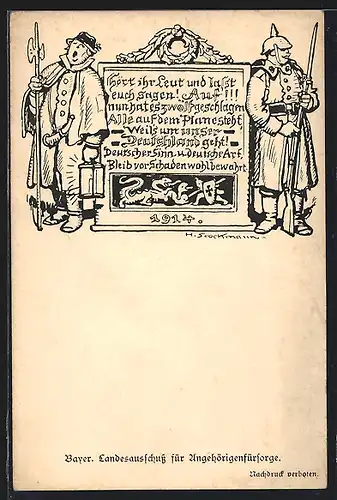 Hört ihr Leut und lasst
euch sagen! Auf!!!
nun hat es zwölf geschlagen
Alle auf dem Plane steht
Weils um unser
Deutschland geht!
Deutscher Sinn u. deutsche Art,
Bleib vor Schaden wohl bewahrt
1914.
H. Stockmann
Bayer. Landesausschuß für Angehörigenfürsorge.
Nachdruck verboten.